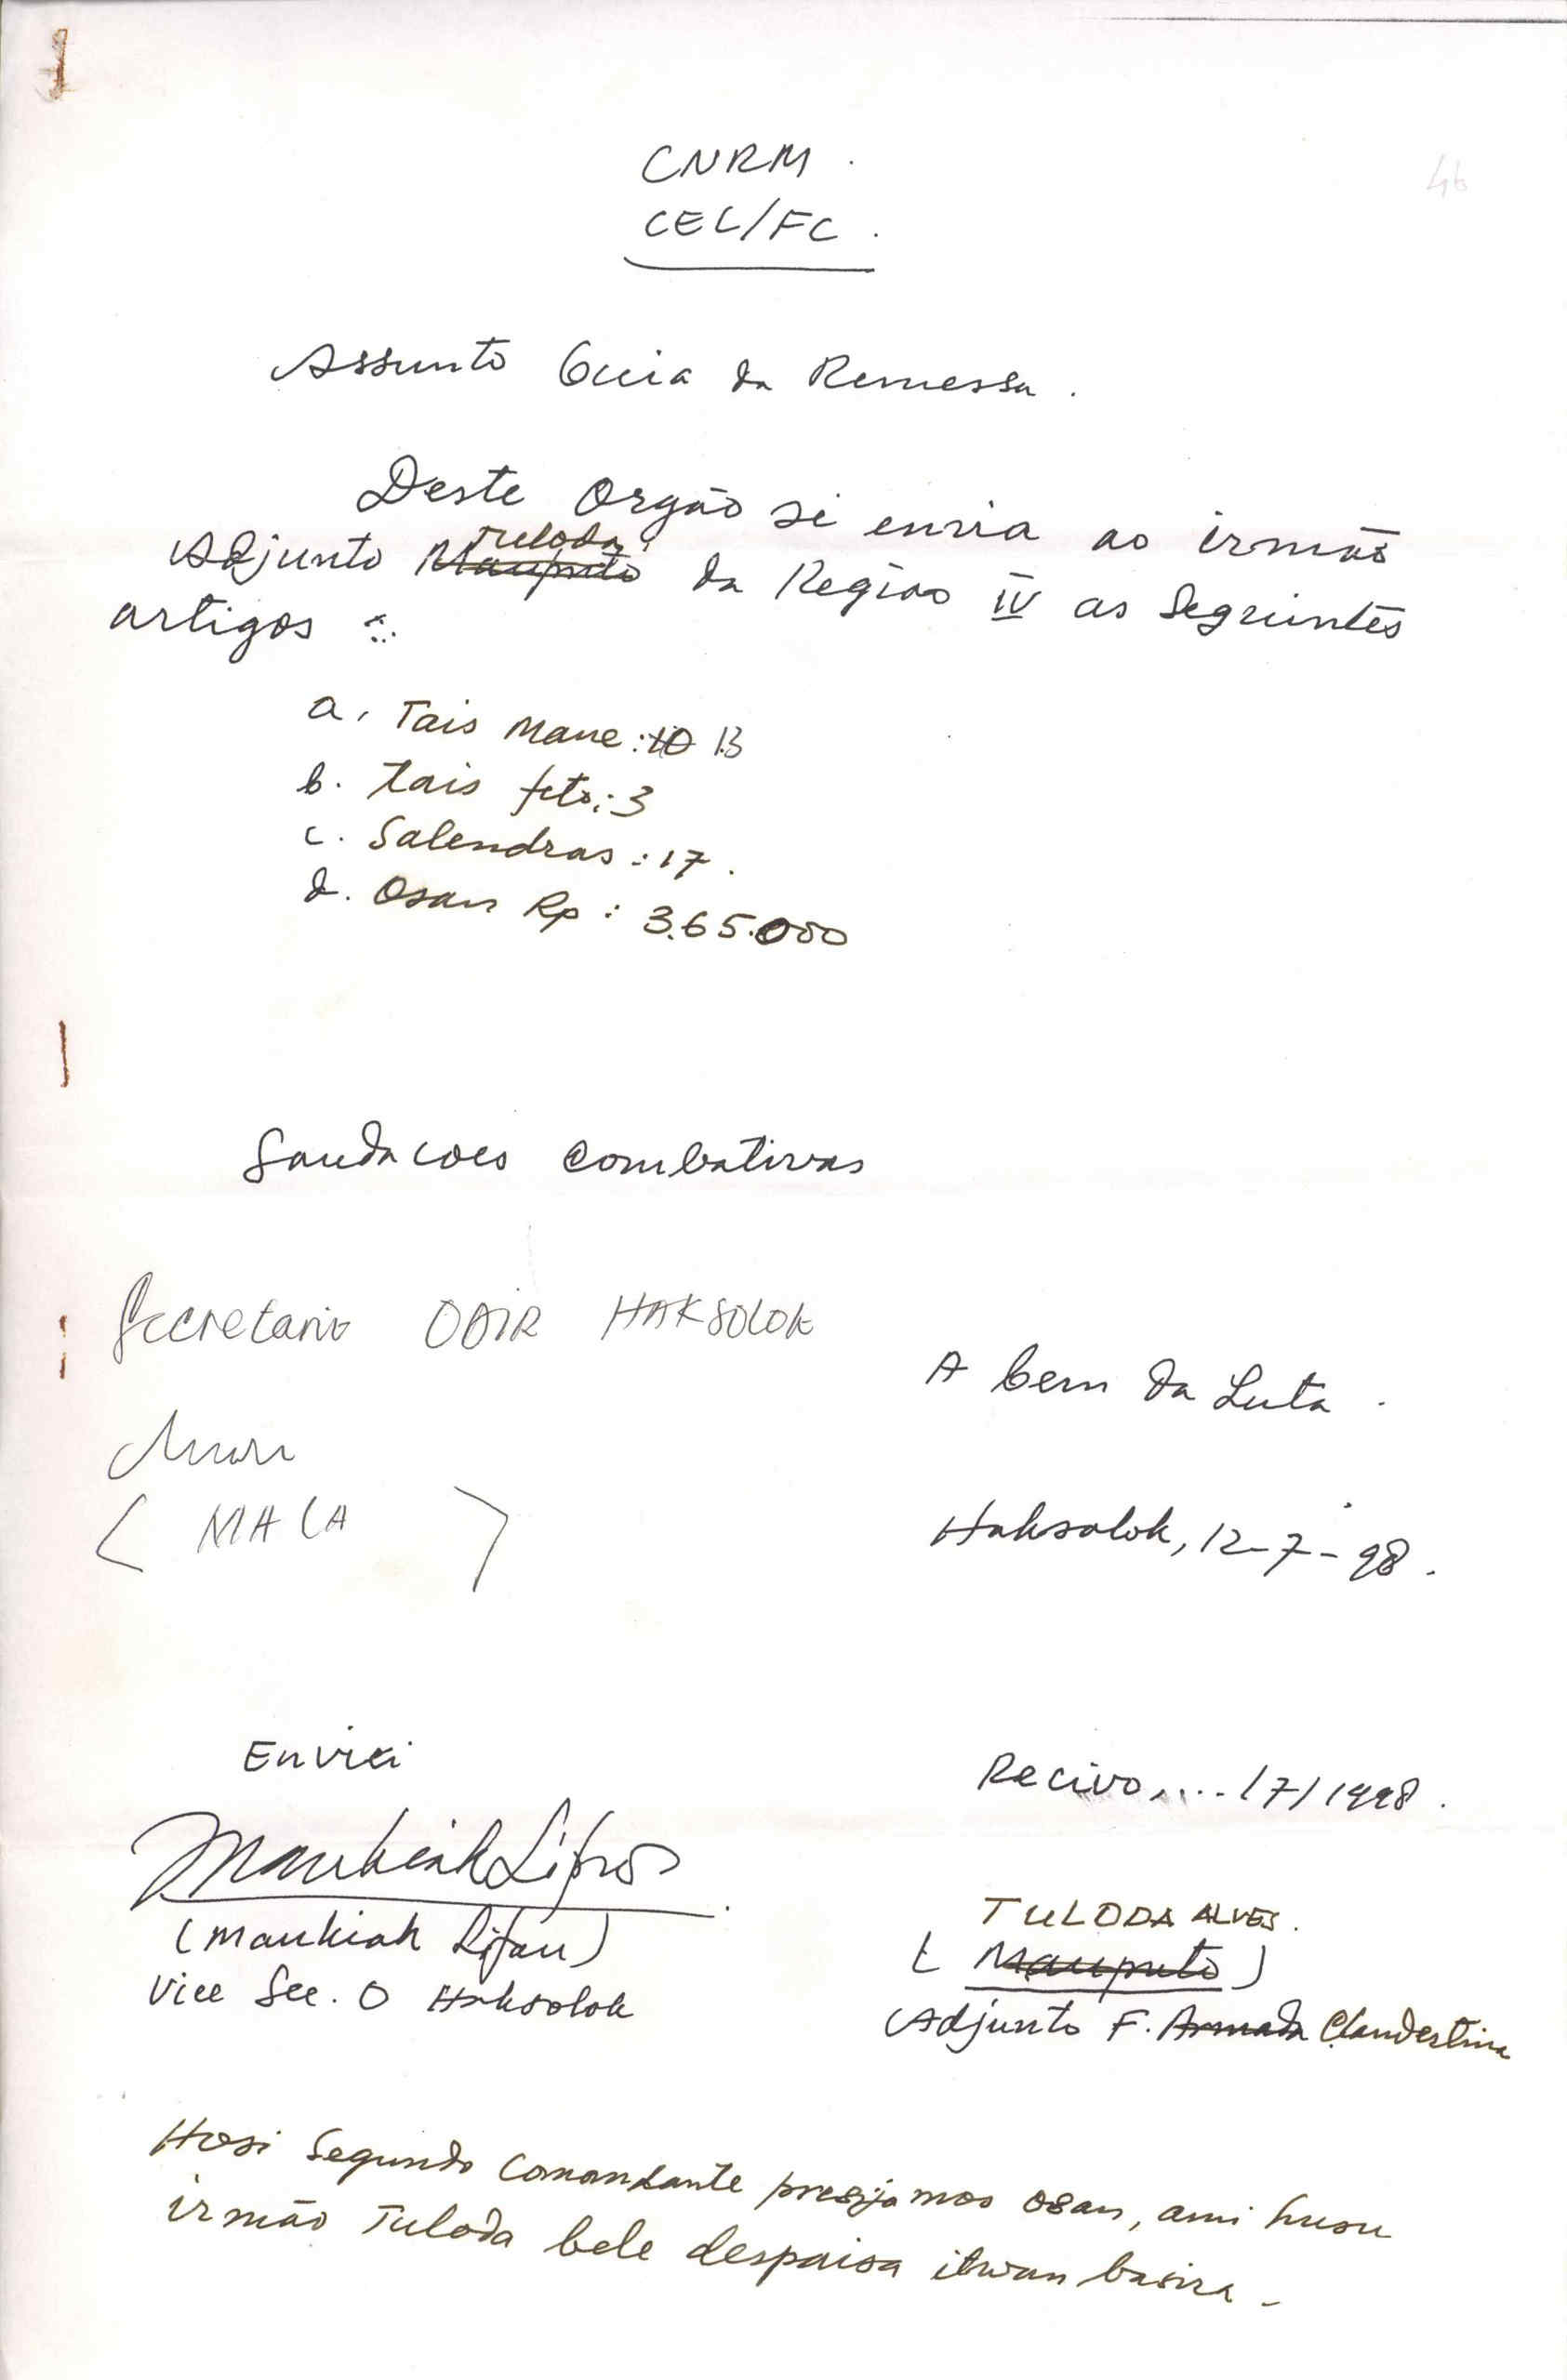 CNRM.
CEL/FC.
46
Assunto Guia da Remessa.
Deste Orgão si envia ao irmão
Tuloda
Adjunto Mauputo da Região IV as Seguintes
artigos :
a. Tais Mane: 10 13
b. tais feto: 3
c. Salendras: 17.
d. Osan Rp: 3.65.000
Saudacoes Combativas
Secretario ODIR HAKSOLOK
A bem da Luta.
< MALA >
Haksolok, 12-7-98.
Enviei
Recivo .... /7/1998.
Maukiak Lifau
TULODA ALVES.
(Maukiak Lifau)
(Mauputo)
Vice Sec. O Haksolok
Adjunto F. Armada Clandestina
Hosi Segundo Comandante presijamos osan, ami husu
irmão Tuloda bele despaisa itwan basira -